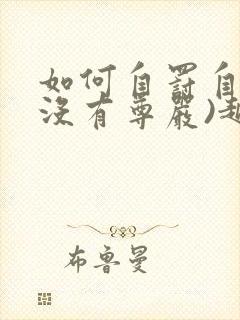 如何自罰自
沒有尊嚴)起
布魯曼